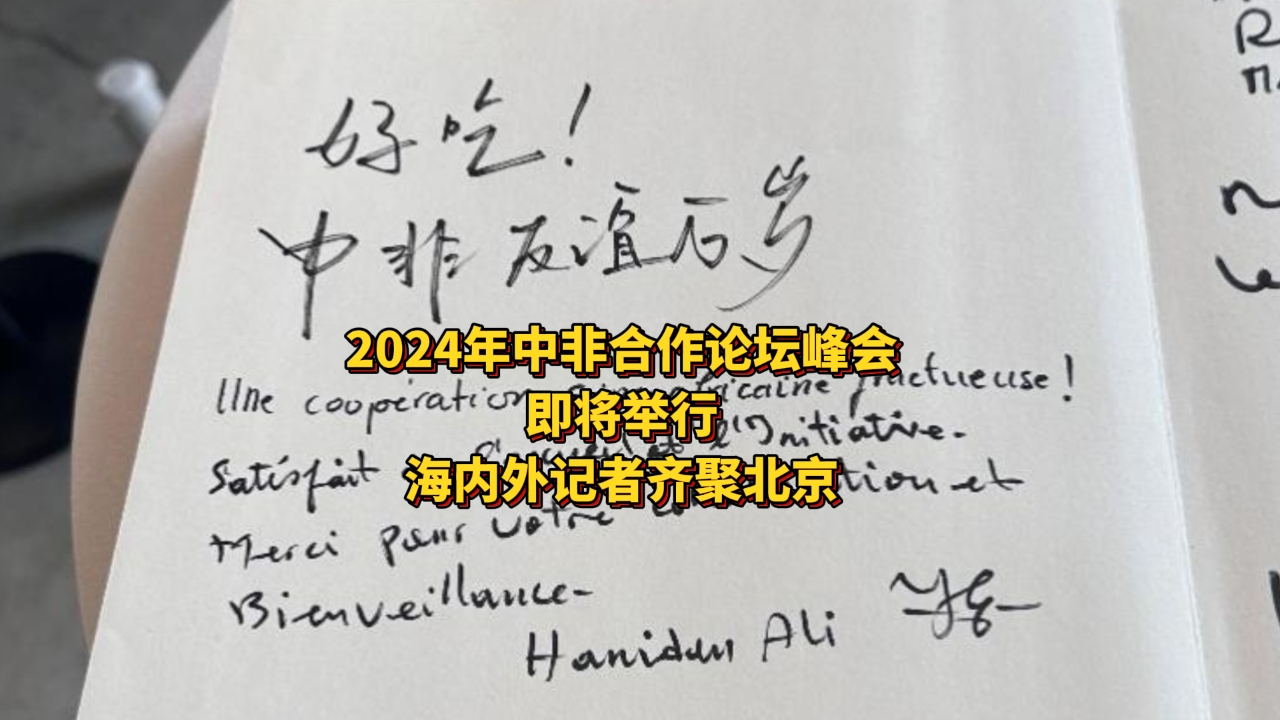 好吃！
中非友谊万岁
2024年中非合作论坛峰会
Une coopération africaine fructueuse!
即将举行
Satisfait l'Initiative.
海内外记者齐聚北京
Merci pour votre et
Bienveillance-
Hanidun Ali